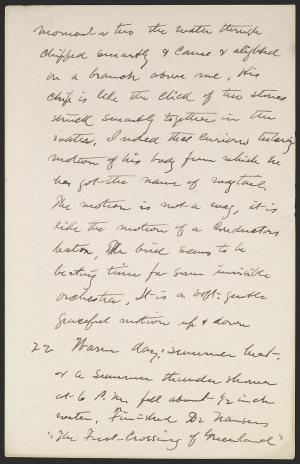 moment or two the water thrush
chipped smartly & came & alighted
on a branch above me. His
chip is like the click of two stones
struck smartly together in the
water. I noted that curious teetering
motion of his body from which he
has got the name of wagtail.
The motion is not a wag, it is
like the motion of a conductors
baton, The bird seems to be
beating time for some invisible
orchestra. It is a soft, gentle
graceful motion up & down
22 Warm day; summer heat,
& a summer thunder shower
at 6 P.M. fell about 1/2 inch
water. Finished Dr Nansens
"The First Crossing of Greenland"